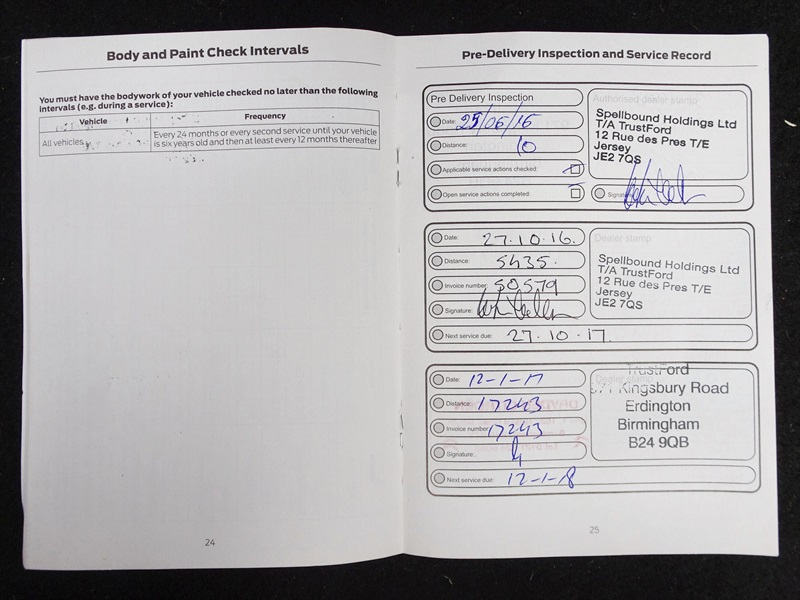 Body and Paint Check Intervals
You must have the bodywork of your vehicle checked no later than the following
intervals (e.g. during a service):
Vehicle Frequency
All vehicles Every 24 months or every second service until your vehicle
is six years old and then at least every 12 months thereafter
24
Pre-Delivery Inspection and Service Record
Pre Delivery Inspection
Date: 25/06/16
Distance: 10
Applicable service actions checked:
Open service actions completed:
Authorised dealer stamp
Spellbound Holdings Ltd
T/A TrustFord
12 Rue des Pres T/E
Jersey
JE2 7QS
Signature
Date: 27.10.16.
Distance: 5435.
Invoice number: 50579
Signature:
Next service due: 27.10.17.
Dealer stamp
Spellbound Holdings Ltd
T/A TrustFord
12 Rue des Pres T/E
Jersey
JE2 7QS
Date: 12-1-17
Distance: 17243
Invoice number: 17243
Signature:
Next service due: 12-1-18
Dealer stamp
TrustFord
Kingsbury Road
Erdington
Birmingham
B24 9QB
25